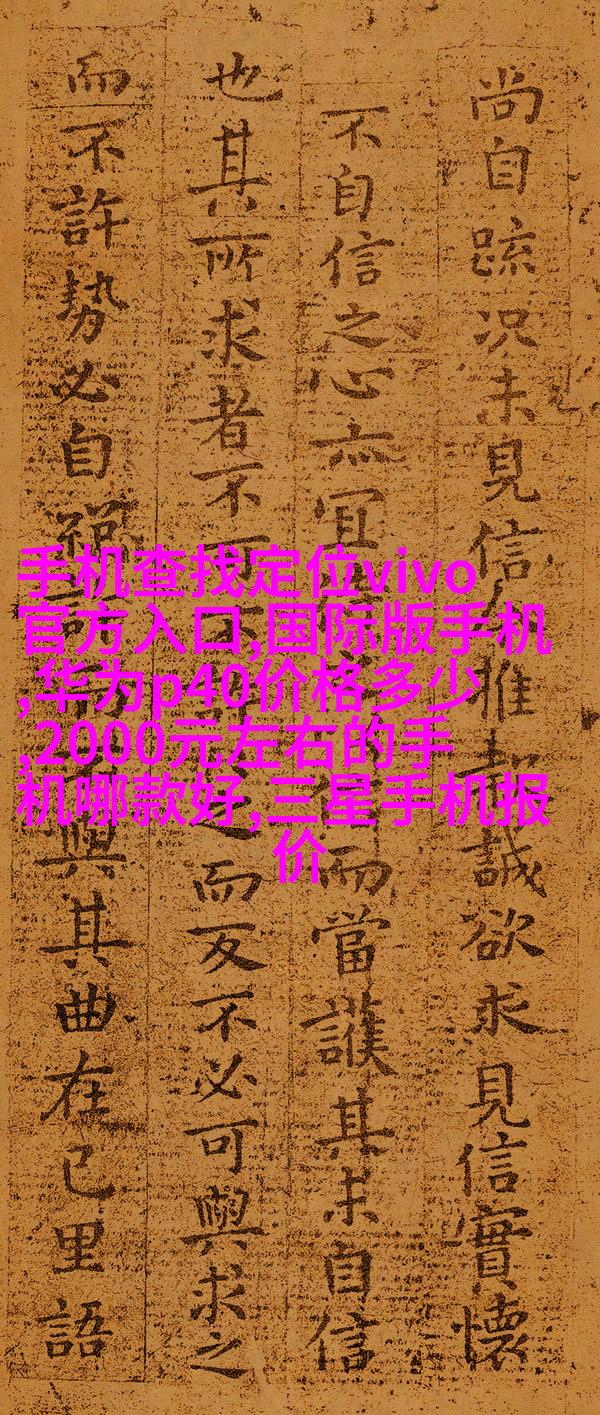 尚自疏况未見信推誠欲求見信實懷
不自信之心亦宜而當護其未自信
也其所求者不可之而反不必可與求之
而不許勢必自與其曲在己里語
手机查找定位vivo
官方入口,国际版手机
,华为p40价格多少
,2000元左右的手
机哪款好,三星手机报
价